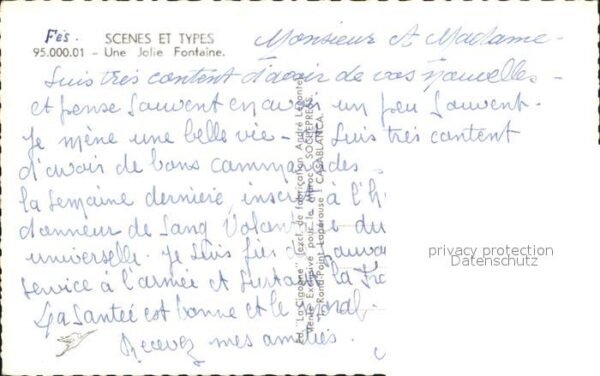 Fés.
SCENES ET TYPES
95.000.01 - Une Jolie Fontaine.
Monsieur et Madame -
Suis très content d'avoir de vos nouvelles -
et pense souvent un peu souvent.
Je mène une belle vie - Suis très content
d'avoir de bons cammarades
la semaine dernière, inscrit à l'H
d'onneur de Sang Volant du
universelle. Je suis fier de
service à l'armée et surtout la Fra
La santée est bonne et le moral.
Recevez mes amitiés.
Ed. "La Cigogne" (excl. de fabrication André Leconte)
Vente Exclusive pour le Maroc : SOCHEPRESS
1, Rond-Point Lapérouse - CASABLANCA.
privacy protection
Datenschutz